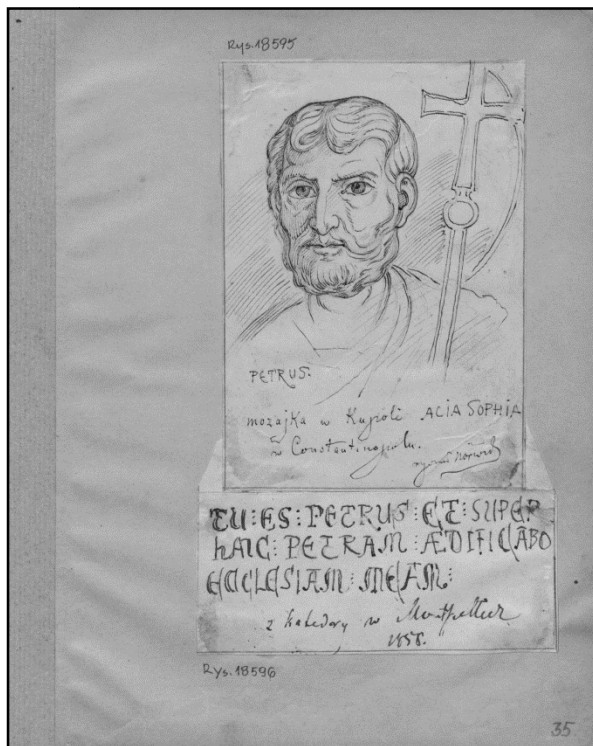 Rys.18595
PETRUS.
mozajka w Kupoli AGIA SOPHIA
w Constantinopolu.
rysował Norwid
TU : ES : PETRUS : ET : SUPER
hANC : PETRAM : ÆDIFICABO
ECCLESIAM : MEAM :
z katedry w Montpellier
1858.
Rys.18596
35